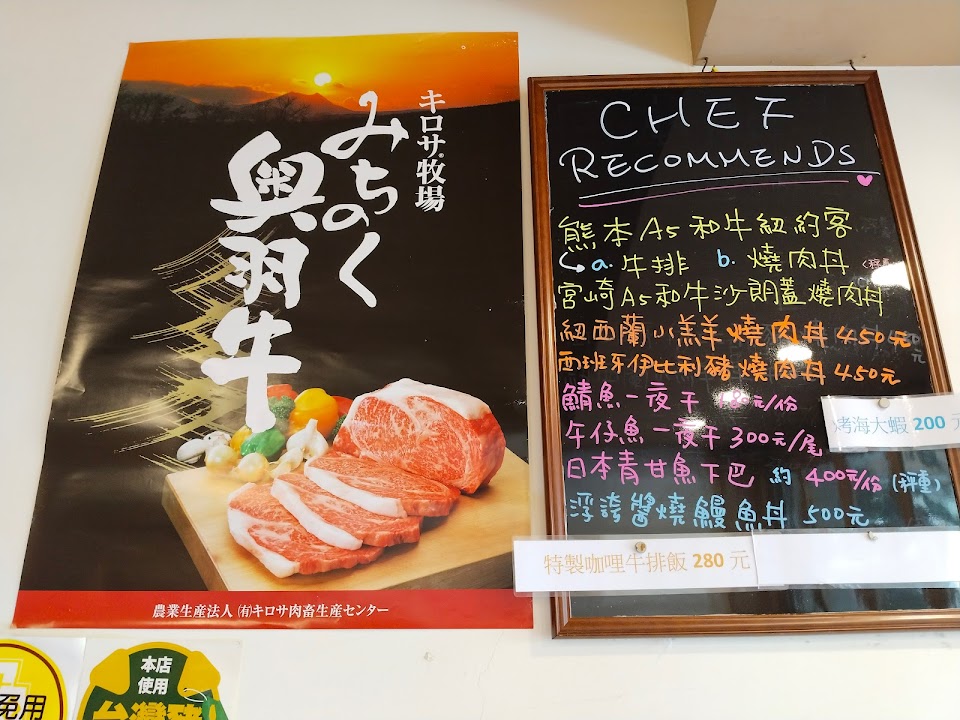 キロサ牧場
みちのく
奥羽牛
農業生産法人 (有)キロサ肉畜生産センター
免用
本店
使用
台灣豬
CHEF
RECOMMENDS
熊本A5和牛紐約客
a. 牛排 b. 燒肉丼 (秤重
宮崎A5和牛沙朗蓋燒肉丼
紐西蘭小羔羊燒肉丼 450元
西班牙伊比利豬燒肉丼 450元
鯖魚一夜干 180元/份
午仔魚一夜干 300元/尾
日本青甘魚下巴 約 400元/份 (秤重)
浮誇醬燒鰻魚丼 500元
烤海大蝦 200 元
特製咖哩牛排飯 280 元